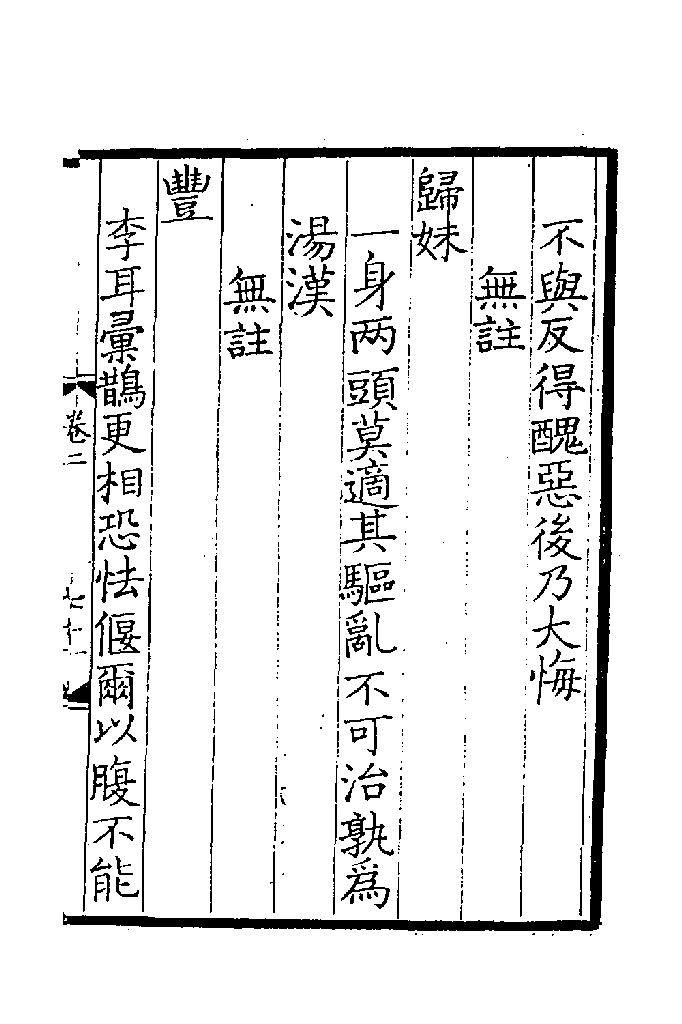 不與反得醜惡後乃大悔
無註
歸妹
一身两頭莫適其驅亂不可治孰爲
湯漢
無註
豐
李耳彙鵲更相恐怯偃爾以腹不能
卷二